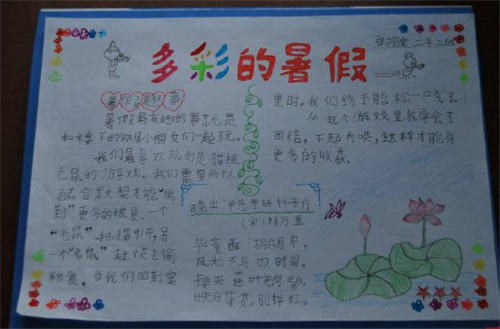 多彩的暑假
二年二班
暑假趣事
暑假最有趣的事就是
和楼下的邻居小朋友们一起玩。
我们最喜欢玩的是猫捉
老鼠的游戏。我们需要两人
配合默契才能“偷
到”更多的粮食。一个
“老鼠”把猫引开,另
一个“老鼠”赶快去偷
粮食。当我们回到窝
里时,我们终于胎松一口气了
从这个游戏里我学会了
团结,不起内哄,这样才能有
更多的收获。
晓出净慈寺送林子方
(宋)杨万里
毕竟西湖六月中,
风光不与四时同。
接天莲叶无穷碧,
映日荷花别样红。